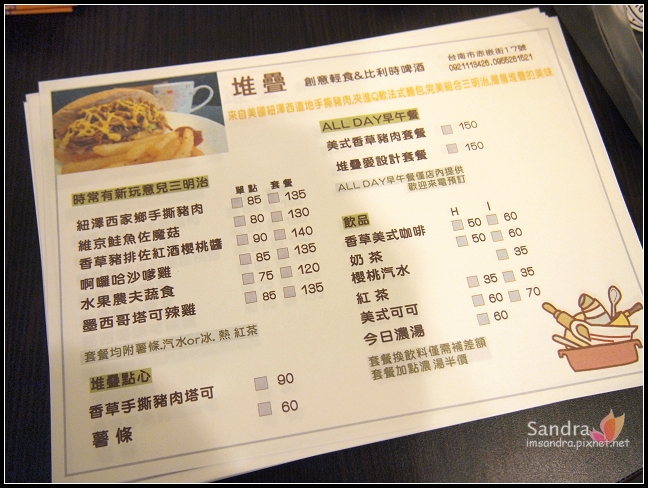 堆疊 創意輕食&比利時啤酒
台南市赤嵌街17號
0921119426.0955261521
來自美國紐澤西道地手撕豬肉,夾進Q軟法式麵包,完美組合三明治,層層堆疊的美味
時常有新玩意兒三明治 單點 套餐
紐澤西家鄉手撕豬肉 85 135
維京鮭魚佐蘑菇 80 130
香草豬排佐紅酒櫻桃醬 90 140
啊囉哈沙嗲雞 85 135
水果農夫蔬食 75 120
墨西哥塔可辣雞 85 135
套餐均附薯條.汽水or冰.熱 紅茶
堆疊點心
香草手撕豬肉塔可 90
薯條 60
ALL DAY早午餐
美式香草豬肉套餐 150
堆疊愛設計套餐 150
ALL DAY早午餐僅店內提供
歡迎來電預訂
飲品 H I
香草美式咖啡 50 60
奶茶 50 60
櫻桃汽水 35
紅茶 35 35
美式可可 60 70
今日濃湯 60
套餐換飲料僅需補差額
套餐加點濃湯半價
Sandra
imsandra.pixnet.net